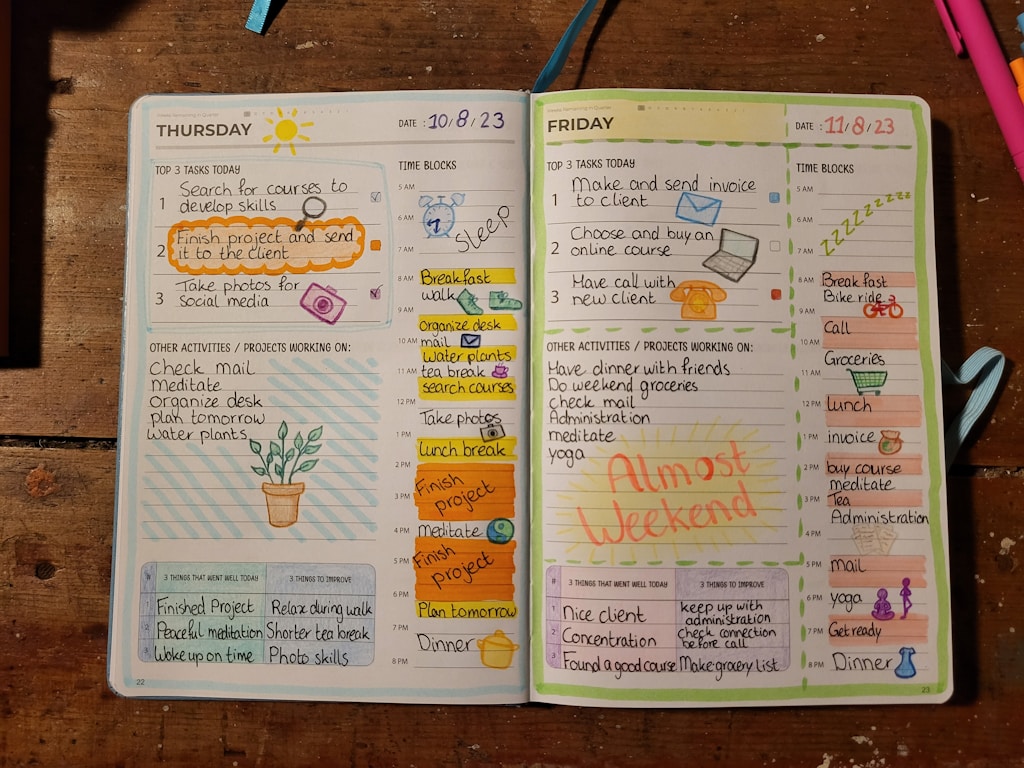 THURSDAY
DATE : 10/8/23
TOP 3 TASKS TODAY
1 Search for courses to
develop skills
2 Finish project and send
it to the client
3 Take photos for
social media
OTHER ACTIVITIES / PROJECTS WORKING ON:
Check mail
Meditate
Organize desk
plan tomorrow
Water plants
# 3 THINGS THAT WENT WELL TODAY 3 THINGS TO IMPROVE
1 Finished Project Relax during walk
2 Peaceful meditation Shorter tea break
3 Woke up on time Photo skills
22
TIME BLOCKS
5 AM
6 AM
Sleep
7 AM
8 AM Breakfast
walk
9 AM
Organize desk
10 AM mail
Water plants
11 AM tea break
search courses
12 PM
Take photos
1 PM
Lunch break
2 PM
Finish
3 PM project
4 PM Meditate
5 PM Finish
project
6 PM
Plan tomorrow
7 PM
Dinner
8 PM
FRIDAY
DATE : 11/8/23
TOP 3 TASKS TODAY
1 Make and send invoice
to client
2 Choose and buy an
online course
3 Have call with
new client
OTHER ACTIVITIES / PROJECTS WORKING ON:
Have dinner with friends
Do weekend groceries
check mail
Administration
meditate
yoga
Almost
Weekend
# 3 THINGS THAT WENT WELL TODAY 3 THINGS TO IMPROVE
1 Nice client keep up with
administration
2 Concentration check connection
before call
3 Found a good course Make grocery list
TIME BLOCKS
5 AM
6 AM
zzzzzzzzzz
7 AM
8 AM Breakfast
Bike ride
9 AM
Call
10 AM
Groceries
11 AM
12 PM Lunch
1 PM invoice
2 PM buy course
meditate
3 PM Tea
Administration
4 PM
5 PM mail
6 PM yoga
7 PM Get ready
8 PM Dinner
23